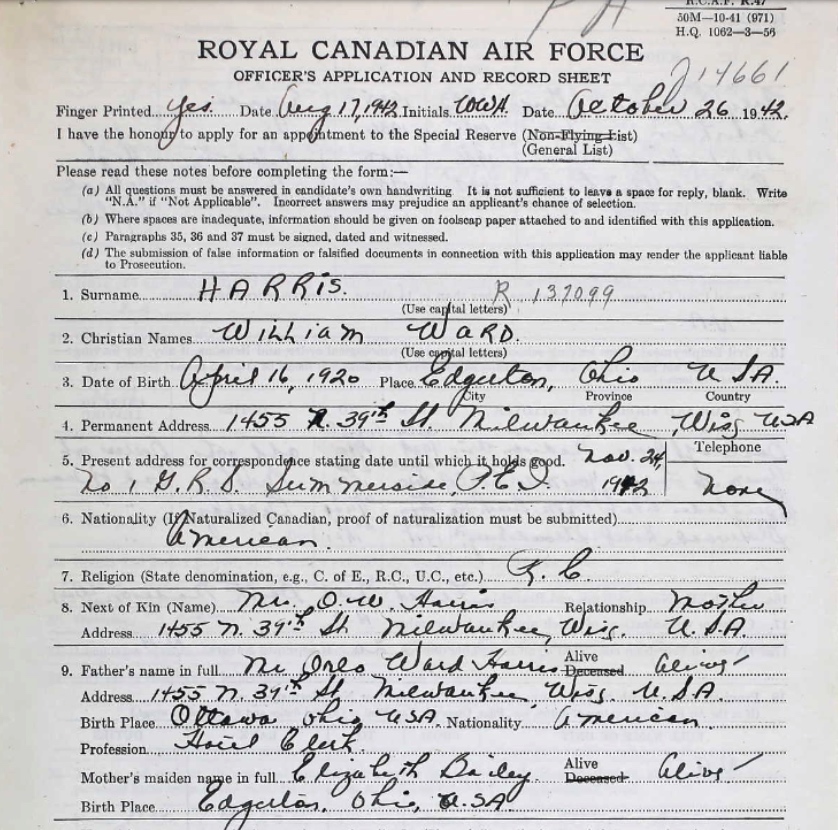 R.C.A.F. R.47
50M—10-41 (971)
H.Q. 1062—3—56
ROYAL CANADIAN AIR FORCE
OFFICER'S APPLICATION AND RECORD SHEET
J14661
Finger Printed yes. Date Aug 17, 1942. Initials WWH Date October 26 1942.
I have the honour to apply for an appointment to the Special Reserve (Non-Flying List)
(General List)
Please read these notes before completing the form:—
(a) All questions must be answered in candidate's own handwriting. It is not sufficient to leave a space for reply, blank. Write
"N.A." if "Not Applicable". Incorrect answers may prejudice an applicant's chance of selection.
(b) Where spaces are inadequate, information should be given on foolscap paper attached to and identified with this application.
(c) Paragraphs 35, 36 and 37 must be signed, dated and witnessed.
(d) The submission of false information or falsified documents in connection with this application may render the applicant liable
to Prosecution.
1. Surname HARRIS. R 137099
(Use capital letters)
2. Christian Names WILLIAM WARD.
(Use capital letters)
3. Date of Birth April 16, 1920 Place Edgerton, Ohio U.S.A.
City Province Country
4. Permanent Address 1455 N. 39th St. Milwaukee, Wis. USA
5. Present address for correspondence stating date until which it holds good. Nov. 24, Telephone
No 1 G.R.S. Summerside, P.E.I. 1942 none
6. Nationality (If Naturalized Canadian, proof of naturalization must be submitted)
American.
7. Religion (State denomination, e.g., C. of E., R.C., U.C., etc.) R.C.
8. Next of Kin (Name) Mrs. O.W. Harris Relationship Mother
Address 1455 N. 39th St. Milwaukee, Wis. U.S.A.
9. Father's name in full Mr Orlo Ward Harris Alive Deceased Alive
Address 1455 N. 39th St. Milwaukee, Wis. U.S.A.
Birth Place Ottawa Ohio USA. Nationality American
Profession Hotel Clerk.
Mother's maiden name in full Elizabeth Bailey. Alive Deceased Alive
Birth Place Edgerton, Ohio, U.S.A.